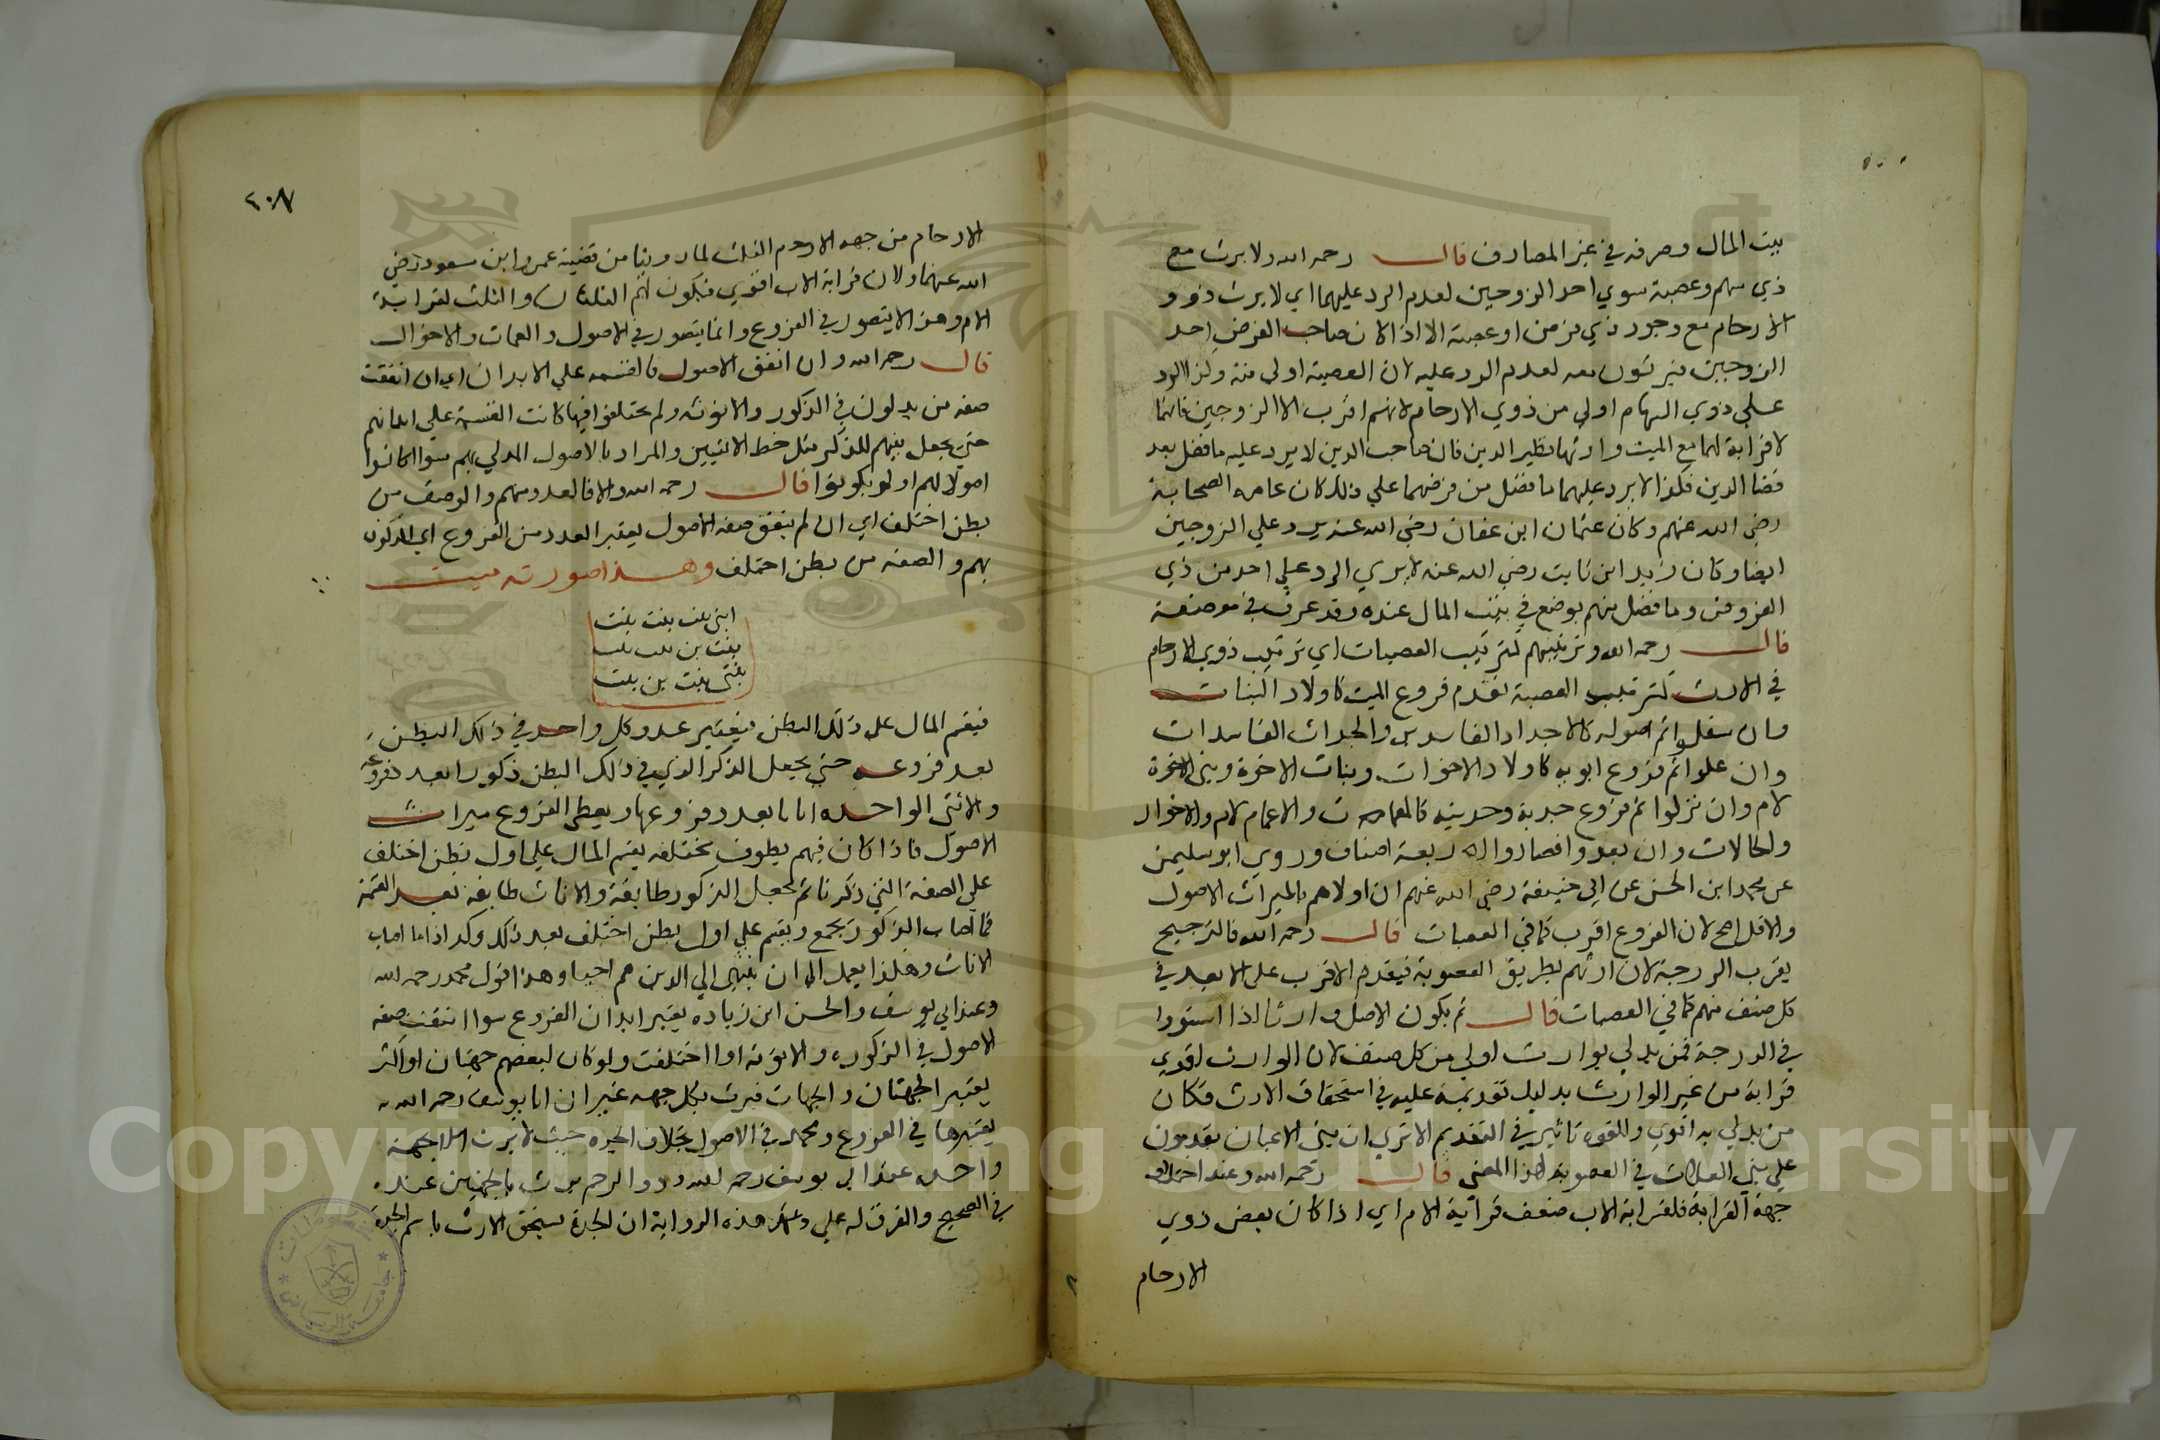 بيت المال وصرفه في غير المصارف قال رحمه الله ولا يرث مع
ذي سهم وعصبة سوي احد الزوجين لعدم الرد عليهما اي لا يرث ذوو
الارحام مع وجود ذي فرض او عصبة الا اذا كان صاحب الفرض احد
الزوجين فيرثون معه لعدم الرد عليه لان العصبة اولى منه وكذا الرد
علي ذوي السهام اولي من ذوي الارحام لانهم اقرب الا الزوجين فانهما
لا قرابة لهما مع الميت وارثهما نظير الدين فان صاحب الدين لا يرد عليه ما فضل بعد
قضا الدين فكذا لا يرد عليهما ما فضل من فرضهما علي ذلك كان عامه الصحابة
رضي الله عنهم وكان عثمان ابن عفان رضي الله عنه يرد علي الزوجين
ايضا وكان زيد ابن ثابت رضي الله عنه لا يري الرد علي احد من ذي
الفروض وما فضل منهم يوضع في بيت المال عنده وقد عرف في موضعه
قال رحمه الله وترتيبهم كترتيب العصبات اي ترتيب ذوي الارحام
في الارث كترتيب العصبة تقدم فروع الميت كاولاد البنات
وان سفلوا ثم اصوله كالاجداد الفاسدين والجدات الفاسدات
وان علوا ثم فروع ابويه كاولاد الاخوات وبنات الاخوة وبني الاخوة
لام وان نزلوا ثم فروع جديه وجدتيه كالعمات والاعمام لام والاخوال
والخالات وان بعدوا فصاروا اربعة اصناف وروي ابو سليمن
عن محمد ابن الحسن عن ابي حنيفة رضي الله عنهم ان اولاهم بالميراث الاصول
والاول اصح لان الفروع اقرب كما في العصبات قال رحمه الله فالترجيح
بقرب الدرجة لان ارثهم بطريق العصوبة فيقدم الاقرب على الابعد في
كل صنف منهم كما في العصبات قال ثم بكون الاصل وارثا اذا استووا
في الدرجة فمن يدلي بوارث اولي من كل صنف لان الوارث اقوي
قرابة من غير الوارث بدليل تقديمه عليه في استحقاق الارث فكان
من يدلي به اقوي وللقوه تاثير في التقديم الا تري ان بني الاعيان يقدمون
علي بني العلات في العصوبة لهذا المعنى قال رحمه الله وعند اختلاف
جهة القرابة فلقرابة الاب ضعف قرابة الام اي اذا كان بعض ذوي
الارحام
٢٠٧
الارحام من جهه الاب ومن جهه الام الثلث لما روينا من قضية عمر وابن مسعود رضي
الله عنهما ولان قرابة الاب اقوي فيكون لهم الثلثان والثلث لقرابة
الام وهذا لا يتصور في الفروع وانما يتصور في الاصول والعمات والاخوال
قال رحمه الله وان اتفق الاصول فالقسمه علي الابدان اي ان اتفقت
صفه من يدلون في الذكور والانوثه ولم يختلفوا فيها كانت القسمة علي ابدانهم
حتي يجعل بينهم للذكر مثل حظ الانثيين والمراد بالاصول المدلي بهم سوا كانوا
اصولا لهم او لم يكونوا قال رحمه الله والا فالعدد منهم والوصف من
بطن اختلف اي ان لم يتفق صفه الاصول يعتبر العدد من الفروع
بهم والصفه من بطن اختلف وهذا صورته ميت
ابني بنت بنت بنت
بنت بن بنت بنت
بنتي بنت بن بنت
فيقسم المال على ذلك البطن فيعتبر عدد كل واحد في ذلك البطن
بعدد فروعه حتي يجعل الذكر الذي في ذلك البطن ذكورا بعدد فروعه
والانثي الواحده اناثا بعدد فروعها ويعطي الفروع ميراث
الاصول فاذا كان فيهم بطون مختلفه يقسم المال علي اول بطن اختلف
على الصفة التي ذكرنا ثم يجعل الذكور طائفة والاناث طائفة بعد القسمة
فما اصاب الذكور يجمع ويقسم علي اول بطن اختلف بعد ذلك وكذا اذا ما اصاب
الاناث وهكذا يعمل الى ان ينتهي الي الذين هم احيا وهذا قول محمد رحمه الله
وعند ابي يوسف والحسن ابن زياده يعتبر ابدان الفروع سوا اتفقت صفه
الاصول في الذكوره والانوثه او اختلفت ولو كان لبعضهم جهتان او اكثر
يعتبر الجهتان والجهات فيرث بكل جهه غير ان ابا يوسف رحمه الله
يعتبرها في الفروع ومحمد في الاصول بخلاف الجده حيث لا يرث الا بجهة
واحده عند ابي يوسف رحمه الله وذو الرحم يرث بالجهتين عنده
في الصحيح والفرق له علي هذه الرواية ان الجدة تستحق الارث باسم الجدة
Copyright © King Saud University